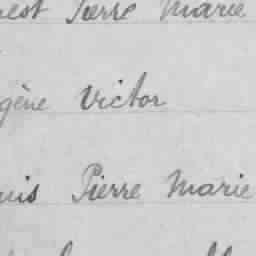 nest Pierre Marie
gène Victor
uis Pierre Marie